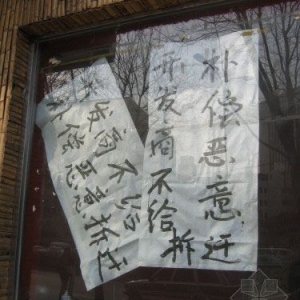 开发商不给
补偿恶意
拆迁
开发商不给
补偿恶意拆迁